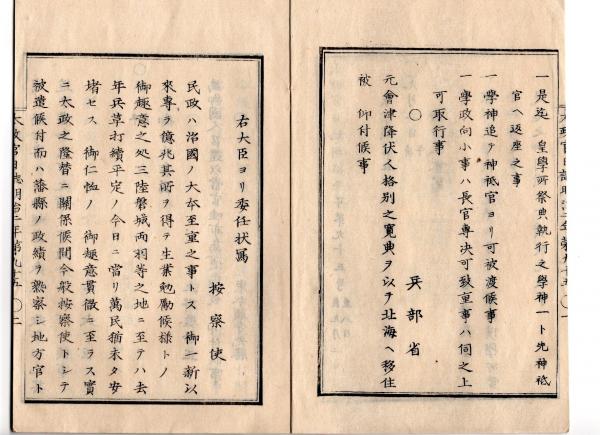 一是迄 皇學所祭典執行之學神一ト先神祗
官ヘ返座之事
一學神追テ神祗官ヨリ可被渡候事
一學政向小事ハ長官專決可致重事ハ伺之上
可取行事
〇 兵部省
元會津降伏人格別之寛典ヲ以テ北海ヘ移住
被 仰付候事
太政官日誌明治二年第九十五 〇一
右大臣ヨリ委任状寫
按察使
民政ハ治國ノ大本至重之事トス 御一新以
來專ラ億兆其所ヲ得テ生業勉勵候様トノ
御趣意之処三陸磐城両羽等之地ニ至テハ去
年兵草打續平定ノ今日ニ當リ萬民猶未タ安
堵セス 御仁恤ノ 御趣意貫徹ニ至ラス實
ニ太政之隆替ニ關係候間今般按察使トシテ
被遣候付而ハ藩縣ノ政績ヲ熟察シ地方官ト
太政官日誌明治二年第九十五 〇二